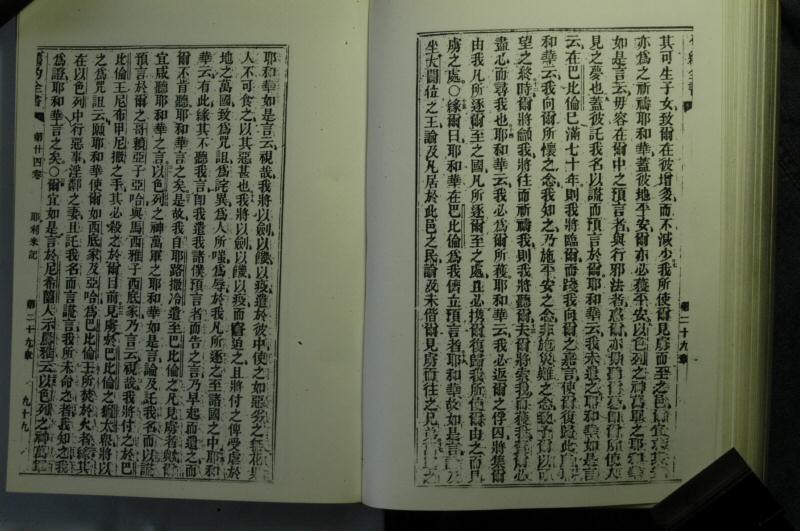 第二十九章
其可生子女致爾在彼增多而不減少我所使爾見虜而至之邑爾宜
亦爲之祈禱耶和華蓋彼地平安爾亦必獲平安以色列之神萬軍之耶和華
如是言云毋容在爾中之預言者與行邪法者惑爾亦
見之夢也蓋彼託我名以謊而預言於爾耶和華云我未遣之耶和華如是言
云在巴比倫已滿七十年則我將臨爾而踐我向爾之嘉言使爾復歸此
和華云我向爾所懷之念我知之乃施平安之念非施災難之念致予爾以
望之終時爾將籲我將往而祈禱我則我將聽爾夫爾將索我而獲我爾必
盡心而尋我也耶和華云我必爲爾所獲耶和華云我必返爾之俘囚將集爾
由我凡所逐爾至之國凡所逐爾至之處且必携爾復歸我所使爾由之而見
虜之處○緣爾曰耶和華在巴比倫爲我儕立預言者耶和華故如是言言及
坐大闢位之王論及凡居於此邑之民論及未偕爾見虜而往之兄弟
耶和華如是言云視哉我將以劍以饑以疫遣於彼中使之如惡劣之無花果
人不可食之以其惡甚也我將以劍以饑以疫而窘迫之且將付之俾受虐於
地之萬國致爲咒詛爲詫異爲人所嗤爲辱於我凡所逐之至諸國之中耶和
華云有此緣其不聽我言卽我遣我諸僕預言者而告之言乃早起而遣之而
爾不肯聽耶和華言之矣是故我自耶路撒冷遣至巴比倫之凡見虜者歟爾
宜咸聽耶和華之言以色列之神萬軍之耶和華如是言論及託我名而以謊
預言於爾之哥賴亞子亞哈與馬西雅子西底家乃言云視哉我將付之於巴
比倫王尼布甲尼撒之手其必殺之於爾目前見虜於巴比倫之猶太衆將以
之爲咒詛云願耶和華使爾如西底家及亞哈爲巴比倫王所焚於火者緣其
在以色列中行惡事淫鄰之妻且託我名而言謊言我所未命之者我知之我
爲證耶和華言之矣○爾宜如是言於尼希蘭人示馬雅云以色列之神萬軍
舊約全書 第廿四卷 耶利米記 第二十九章 九十九